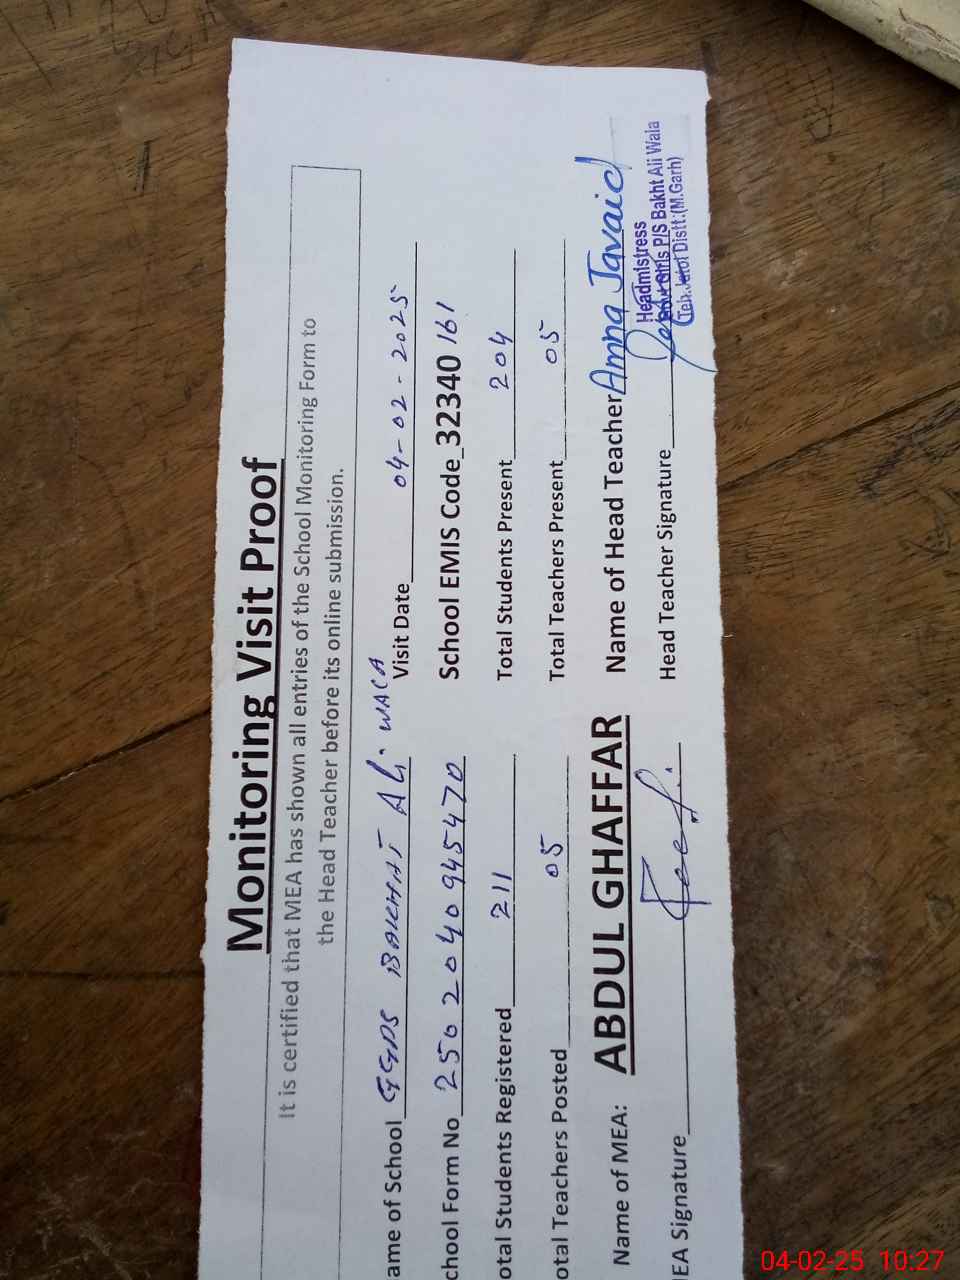 Monitoring Visit Proof
It is certified that MEA has shown all entries of the School Monitoring Form to
the Head Teacher before its online submission.
ame of School GGPS BAKHAT ALi WALA Visit Date 04-02-2025
chool Form No 2502040945470 School EMIS Code 32340161
otal Students Registered 211 Total Students Present 204
otal Teachers Posted 05 Total Teachers Present 05
Name of MEA: ABDUL GHAFFAR Name of Head Teacher Amna Javaid
EA Signature Head Teacher Signature
Headmistress
Govt Girls P/S Bakht Ali Wala
Teh:Jatoi Distt:(M.Garh)
04-02-25 10:27